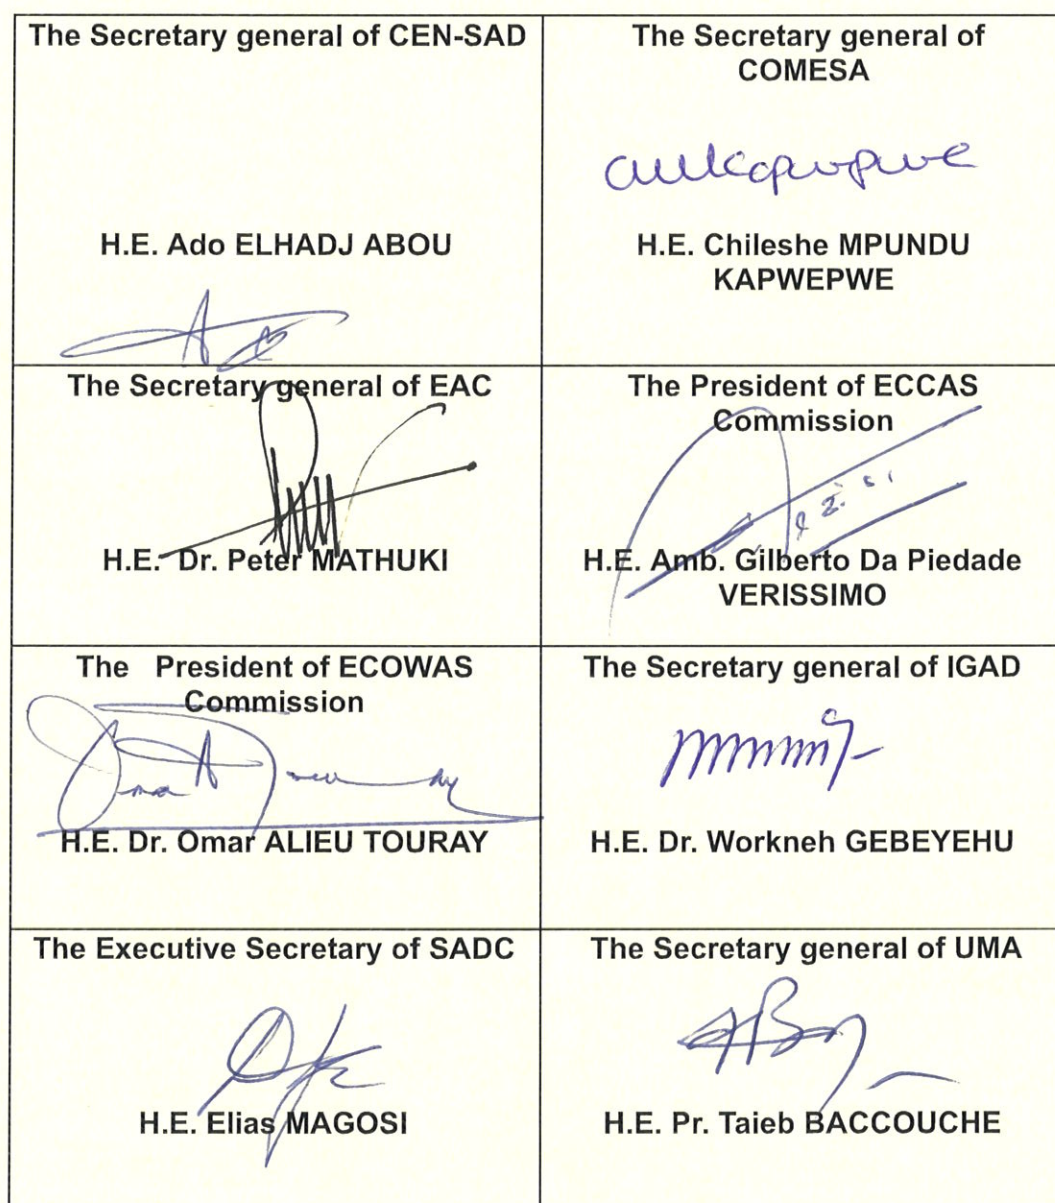 The Secretary general of CEN-SAD
H.E. Ado ELHADJ ABOU
The Secretary general of
COMESA
H.E. Chileshe MPUNDU
KAPWEPWE
The Secretary general of EAC
H.E. Dr. Peter MATHUKI
The President of ECCAS
Commission
H.E. Amb. Gilberto Da Piedade
VERISSIMO
The President of ECOWAS
Commission
H.E. Dr. Omar ALIEU TOURAY
The Secretary general of IGAD
H.E. Dr. Workneh GEBEYEHU
The Executive Secretary of SADC
H.E. Elias MAGOSI
The Secretary general of UMA
H.E. Pr. Taieb BACCOUCHE